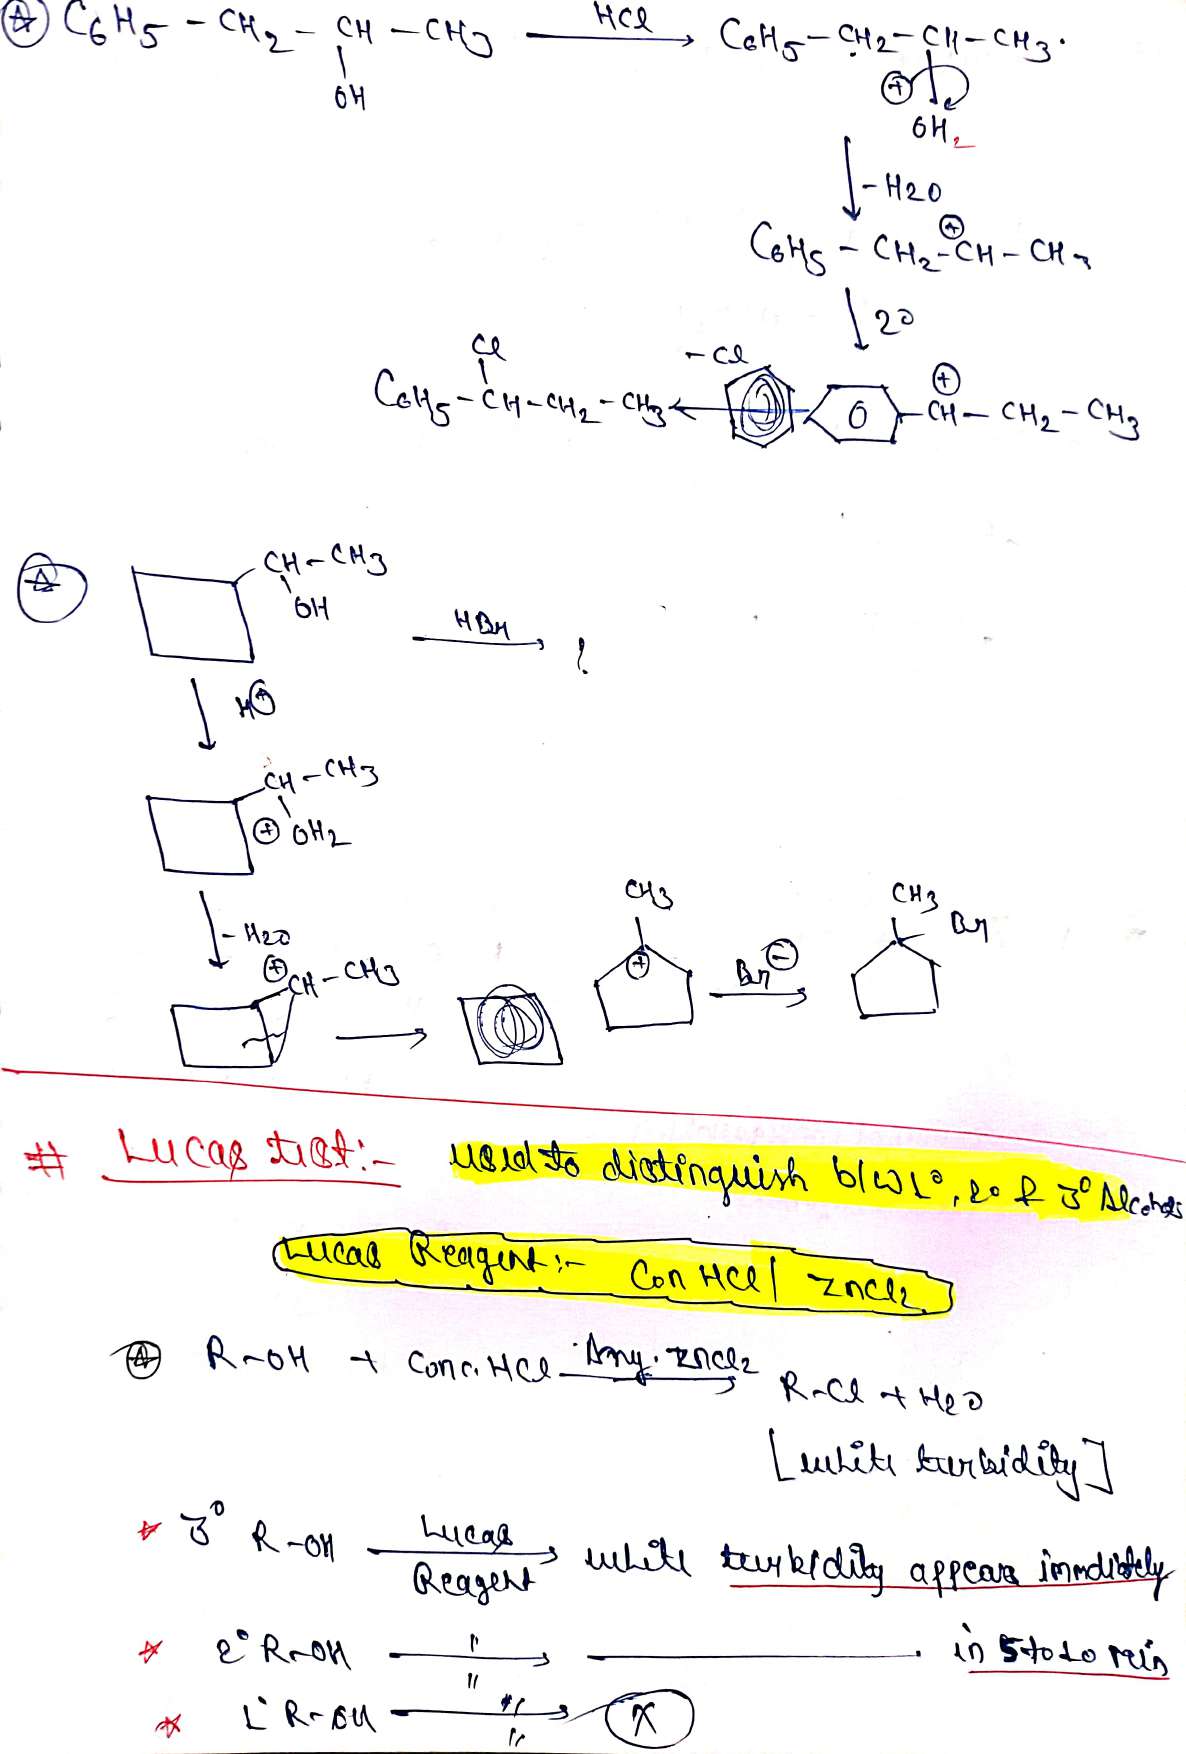 C6H5 - CH2 - CH - CH3 HCl C6H5 - CH2 - CH - CH3.
OH
⊕
OH2
- H2O
⊕
C6H5 - CH2 - CH - CH3
2°
Cl
- Cl
⊕
C6H5 - CH - CH2 - CH3
CH - CH2 - CH3
CH - CH3
OH
HBr
?
H⊕
CH - CH3
⊕ OH2
- H2O
⊕ CH - CH3
CH3
⊕
Br⊖
CH3
Br
# Lucas test:- used to distinguish b/w 1°, 2° & 3° Alcohols
Lucas Reagent:- Con HCl / ZnCl2
R-OH + Conc. HCl Any. ZnCl2 R-Cl + H2O
[white turbidity]
3° R-OH Lucas Reagent white turbidity appears immdiately
2° R-OH " " in 5 to 10 min
1° R-OH " " X